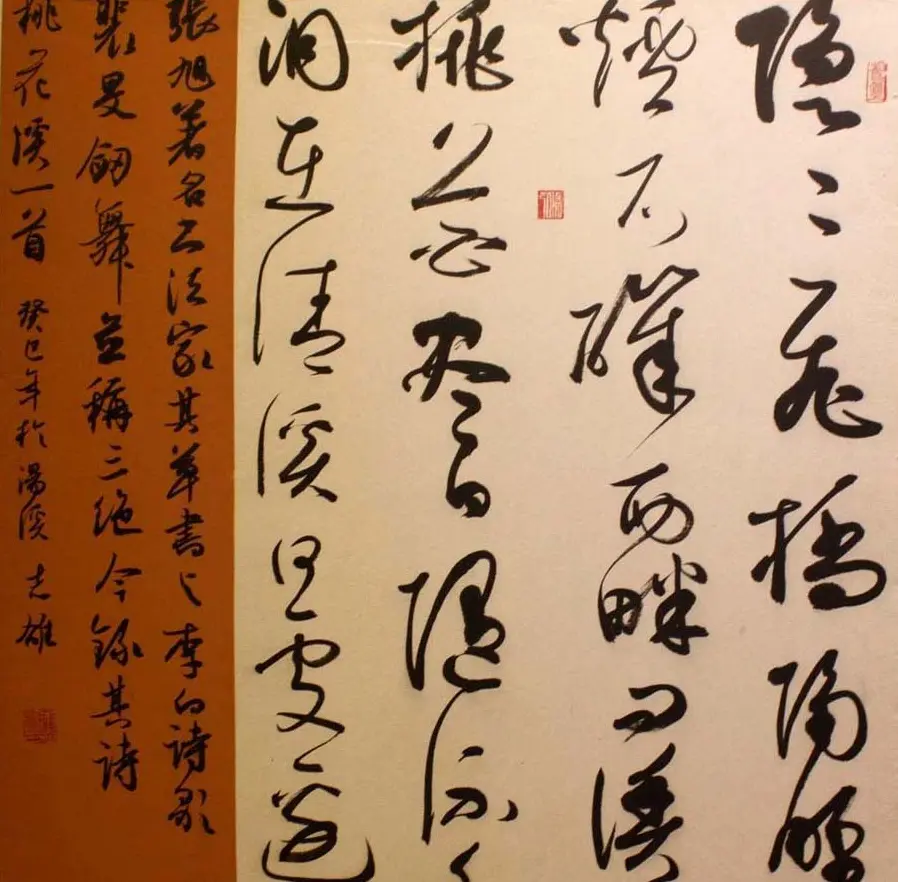 隱〻飛橋隔野
煙石磯西畔問漁
桃花盡日隨流水
洞在清溪何處邊
張旭著名书法家其草書与李白詩歌
裴旻劍舞並稱三絕今錄其詩
桃花溪一首 癸巳年於湯溪 志雄